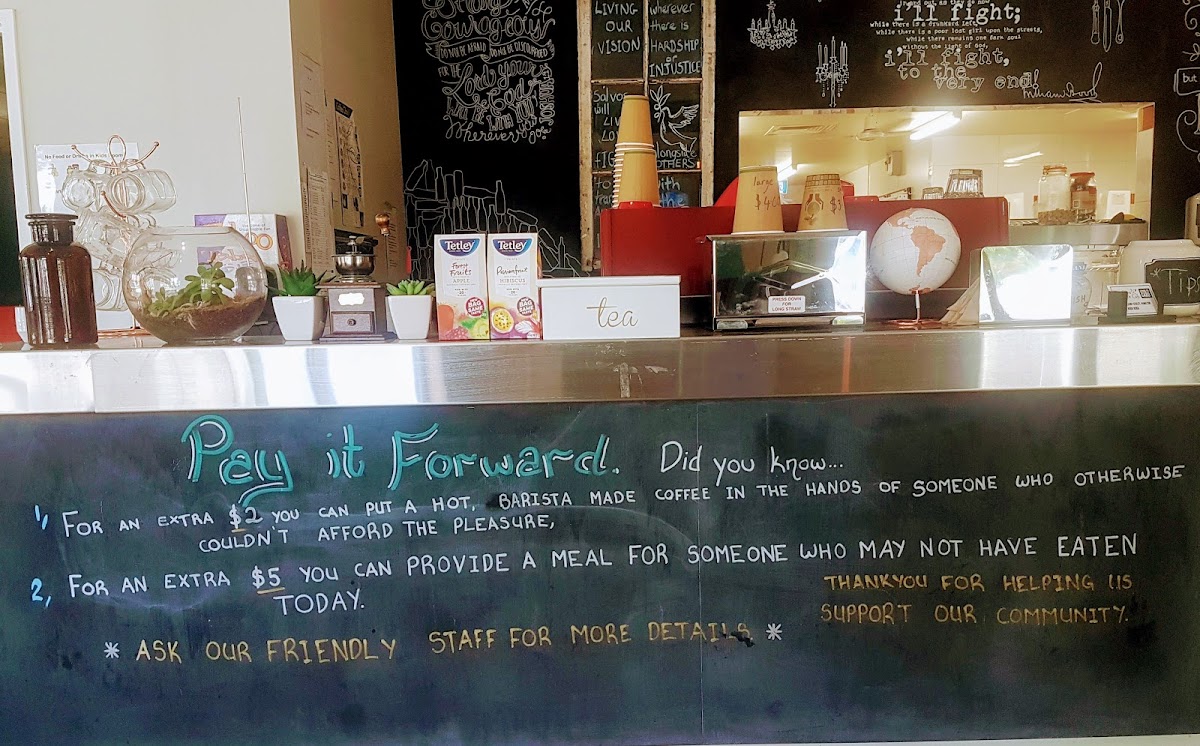 Strong
Courageous
FOR THE Lord your
God
WILL BE WITH YOU
Wherever you go
LIVING
OUR
VISION
wherever
there is
HARDSHIP
or
INJUSTICE
Salvos
will
LIVE
LOVE
FIGHT
alongside
OTHERS
with
i'll fight;
while there is a drunkard left,
while there is a poor lost girl upon the streets,
while there remains one dark soul
without the light of God,
i'll fight,
to the
very end!
but
No Food or Drinks in Kids Room
Tetley
Forest
Fruits
APPLE
Tetley
Passionfruit
HIBISCUS
tea
large
$4
PRESS DOWN
FOR
LONG STRAW
Tips
Pay it Forward. Did you know...
1, FOR AN EXTRA $2 YOU CAN PUT A HOT, BARISTA MADE COFFEE IN THE HANDS OF SOMEONE WHO OTHERWISE
COULDN'T AFFORD THE PLEASURE,
2, FOR AN EXTRA $5 YOU CAN PROVIDE A MEAL FOR SOMEONE WHO MAY NOT HAVE EATEN
TODAY.
* ASK OUR FRIENDLY STAFF FOR MORE DETAILS *
THANKYOU FOR HELPING US
SUPPORT OUR COMMUNITY.